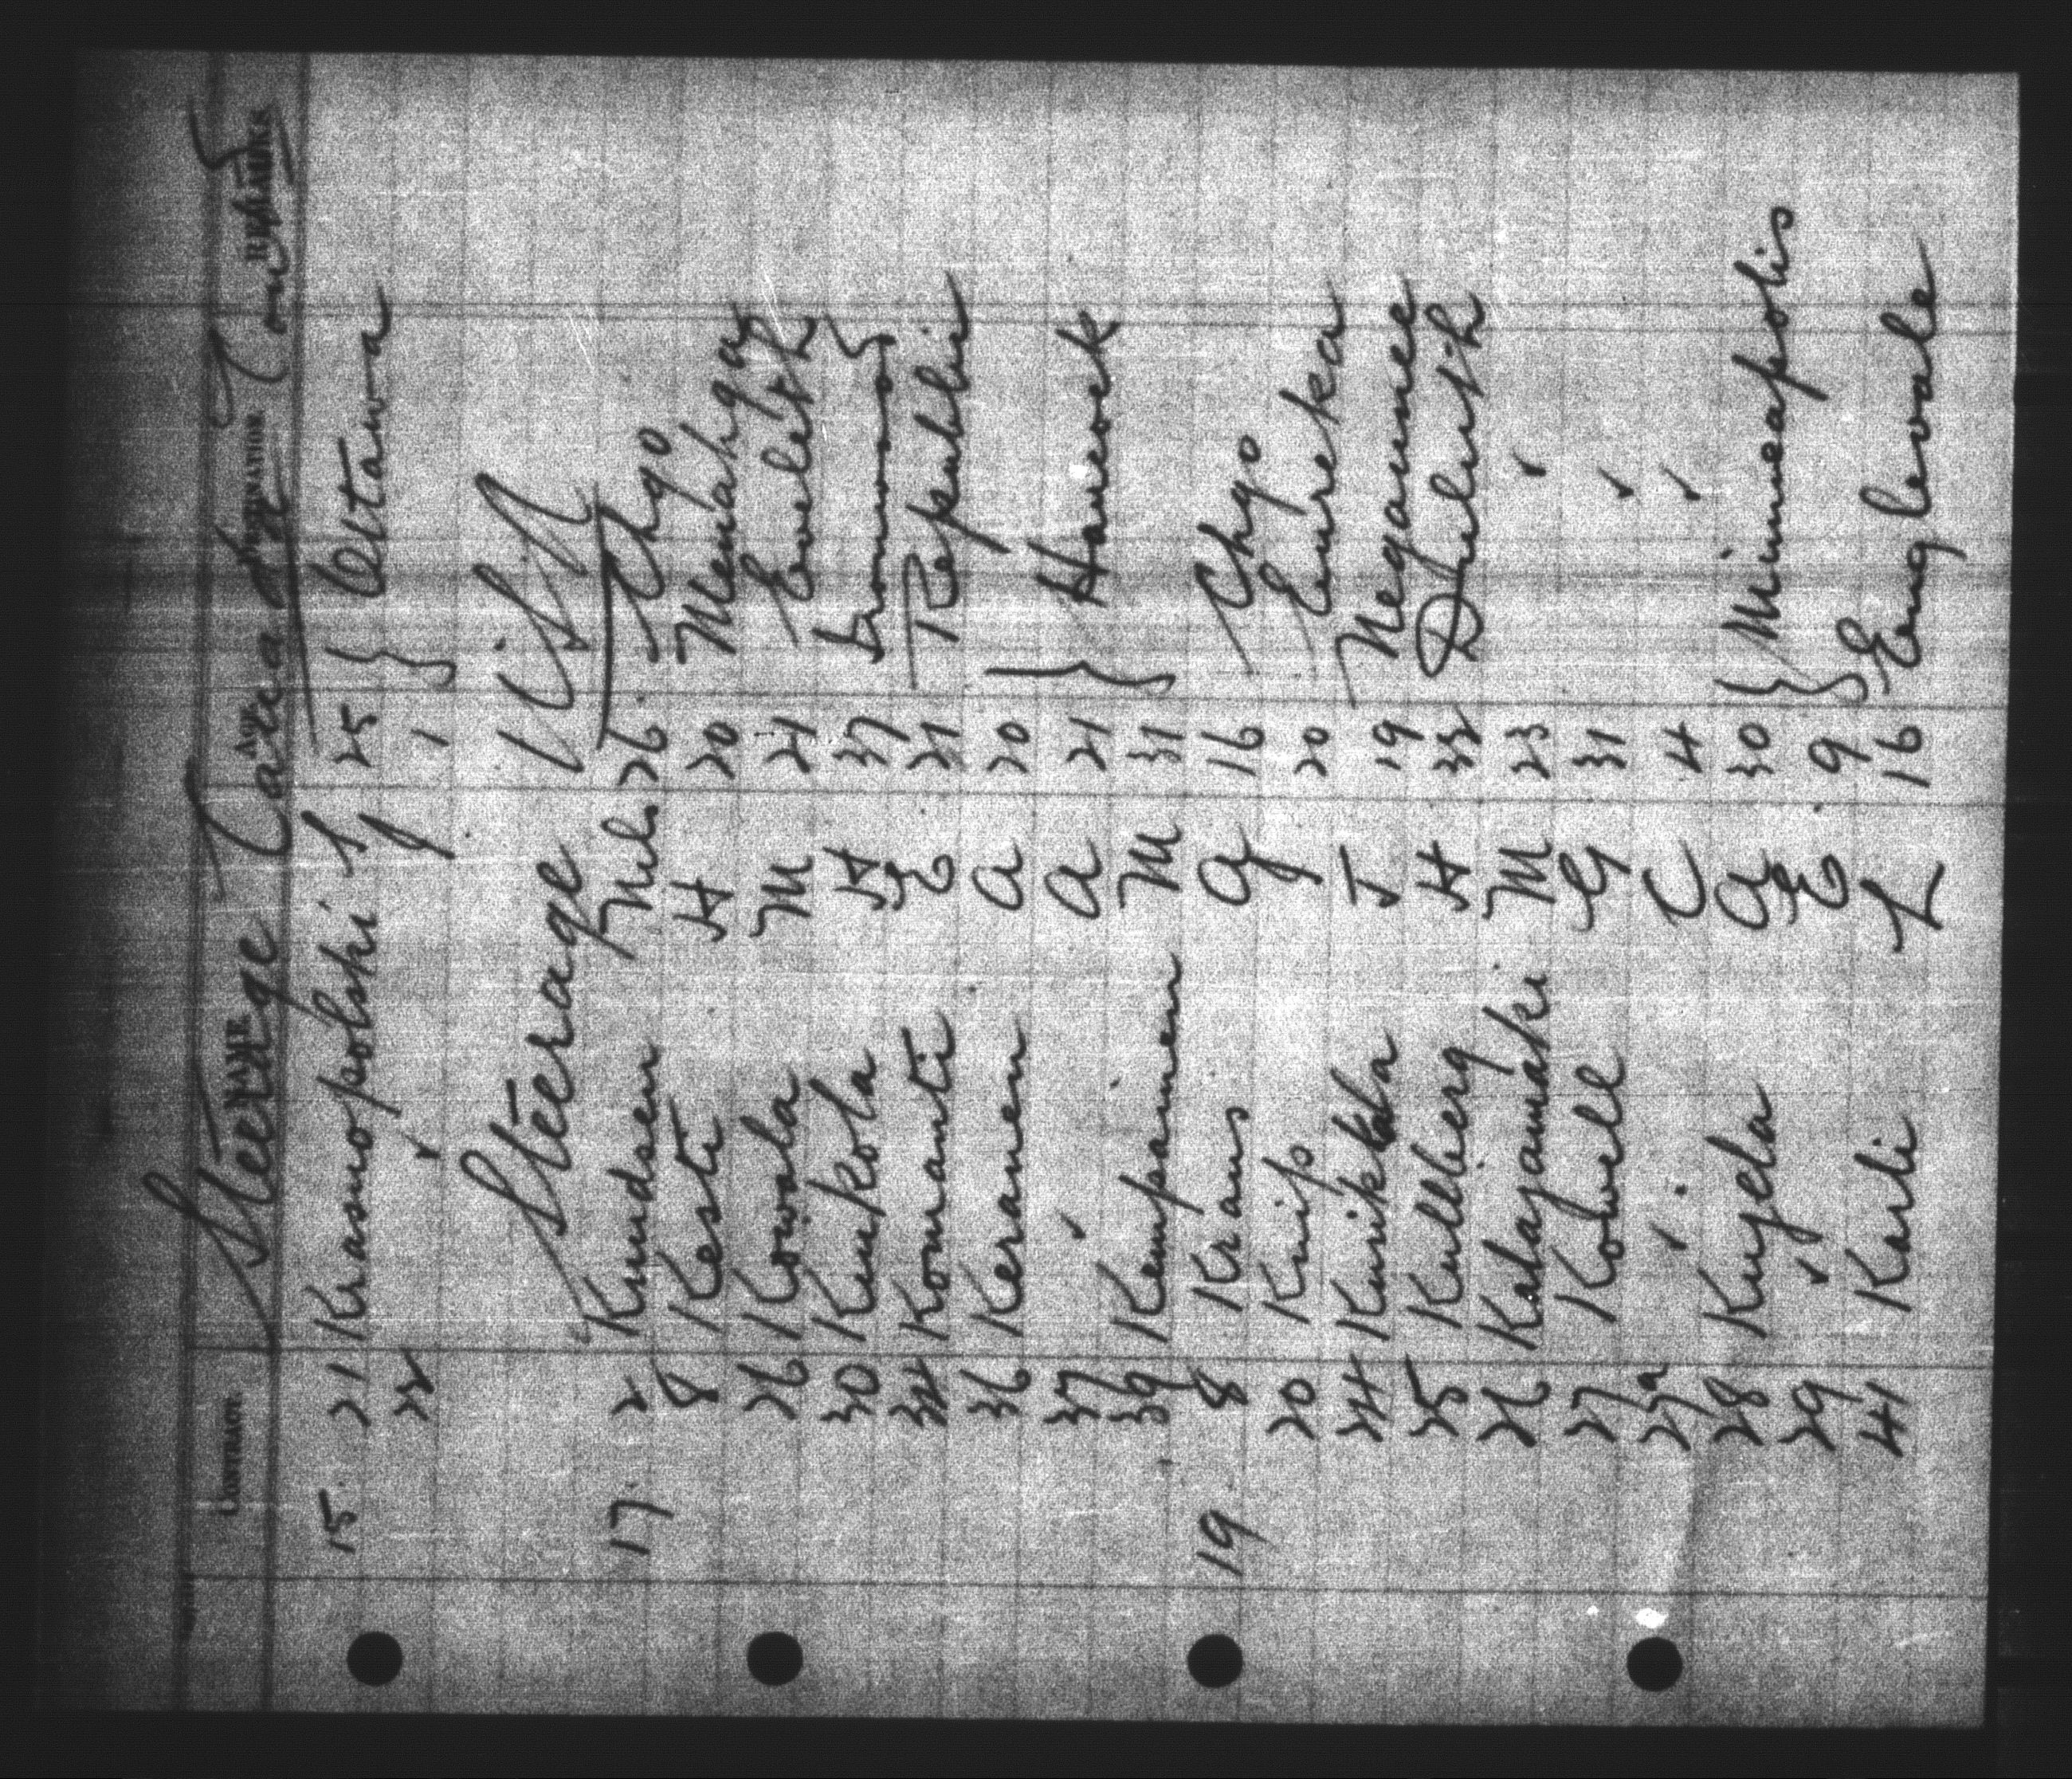 CONTRACT NAME AGE DESTINATION REMARKS
Steerage Canada Con
15. 21 Krasnopolski S 25 } Ottawa
22 ✓ J 1
Steerage USA
17. 2 Knudsen Nils 26 Chgo
8 Kesti H 20 Menahga
26 Kowala M 21 Eveleth
30 Kunkola H 37 Ironwood
34 Komanti E 21 Republic
36 Keranen A 20
37 ✓ A 21 } Hancock
39 Kemppainen M 31
19 8 Kraus A 16 Chgo
20 Knip J 20 Eureka
24 Kurikkala J 19 Negaunee
25 Kullberg H 32 Duluth
26 Katajamaki M 23 ✓
27 Kowell G 31 ✓
27a ✓ C 4 ✓
28 Kujela A 30 } Minneapolis
29 ✓ E 9
41 Karli L 16 Englevale